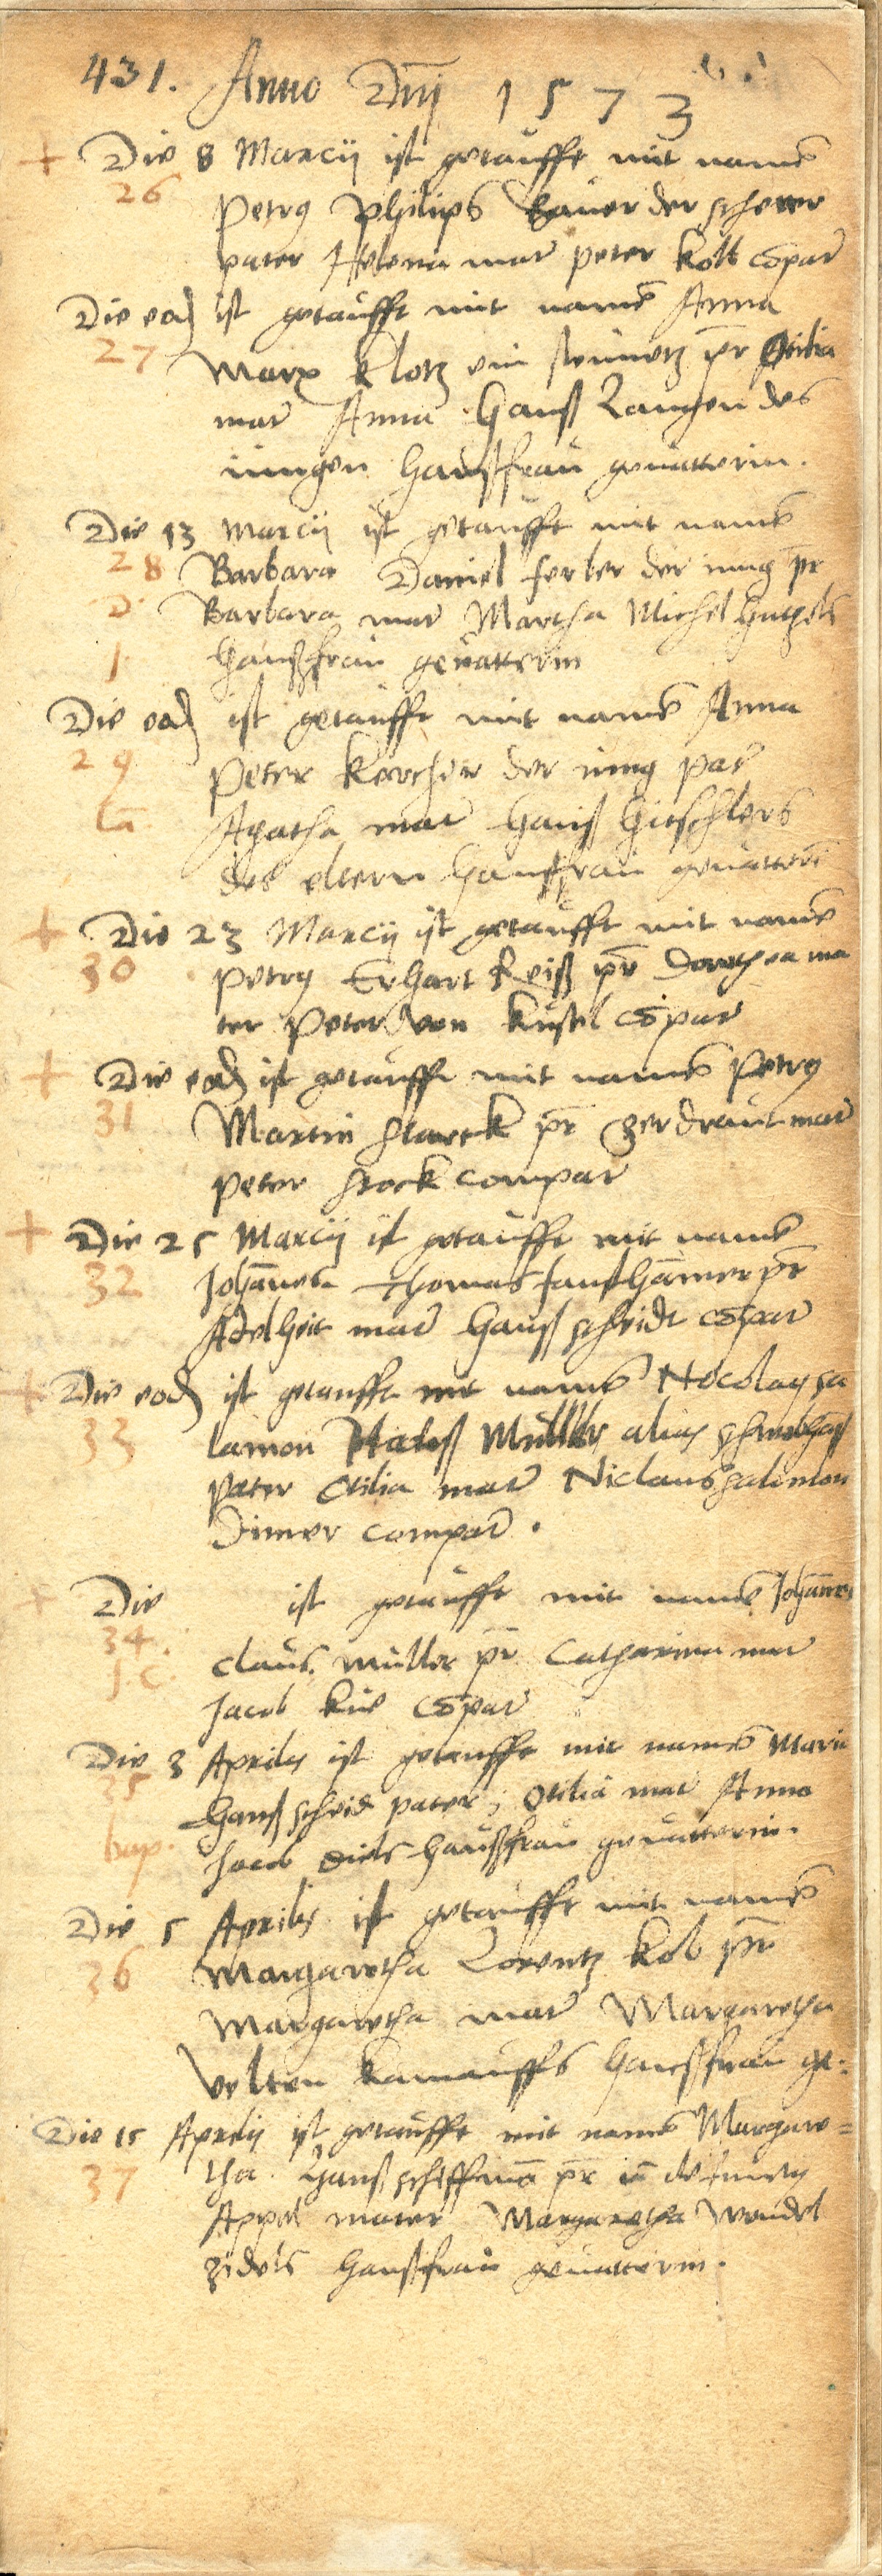 431. Anno Dnj 1573
+ Die 8 Marcij ist getaufft mit namē
26 Petrꝰ Philips baüer der scherer
pater Helena mar̄ peter kolb cōpar̄
Die eod̄ ist getaüfft mit namē Anna
27 Marx Klotz ein steinmetz pr̄ Otilia
mar̄ Anna Hanß Langen des
iungen haüßfraü geuatterin.
Die 13 Marcij ist getaüfft mit namē
28 Barbara Daniel ferber der iung pr̄
D. Barbara mar̄ Martha Michel
J. haüßfraü geuatterin
Die eod̄ ist getaüfft mit namē Anna
29 Peter kercher der iung par̄
Agatha mar̄ Hanß Hirschlers
des eltern haüßfraü geuatterī
+ Die 23 Marcij ist getaüfft mit namē
30 Petrꝰ Erhart Reiß pr̄ Dorothea ma
ter Peter von küsel cōpar̄
+ Die eod̄ ist getaüfft mit namē Petrꝰ
31 Martin starck pr̄ Gerdraüt mar̄
Peter stock compar̄
+ Die 25 Marcij ist getaüfft mit namē
32 Johānes Thomas pr̄
Adelheit mar̄ Hanß scheidt cōpar̄
+ Die eod̄ ist getaufft mit namē Nocolaꝰ sa
33 lamon Müller alias
Pater Otilia mar̄ Niclaus salomon
Dimer compar̄.
+ Die ist getaüfft mit namē Johānes
34 Claüs Müller pr̄ Catharina mar̄
J. C. Jacob cōpar̄
Die 3 Aprilis ist getaufft mit namen Maria
35 Hanß scheid pater, Otilia mar̄ Anna
bap. Jacob diels haüßfraü geuatterin.
Die 5 Aprilis ist getaüfft mit namē
36 Margaretha Lorentz kolb pr̄
Margaretha mar̄ Margaretha
Velten kamauffs haüßfraü ge:
Die 15 Aprilis ist getaüfft mit namē Margare=
37 tha Hanß schiffmā pr̄
Appel mater Margaretha Wendel
zidels haüßfraü geuatterin.